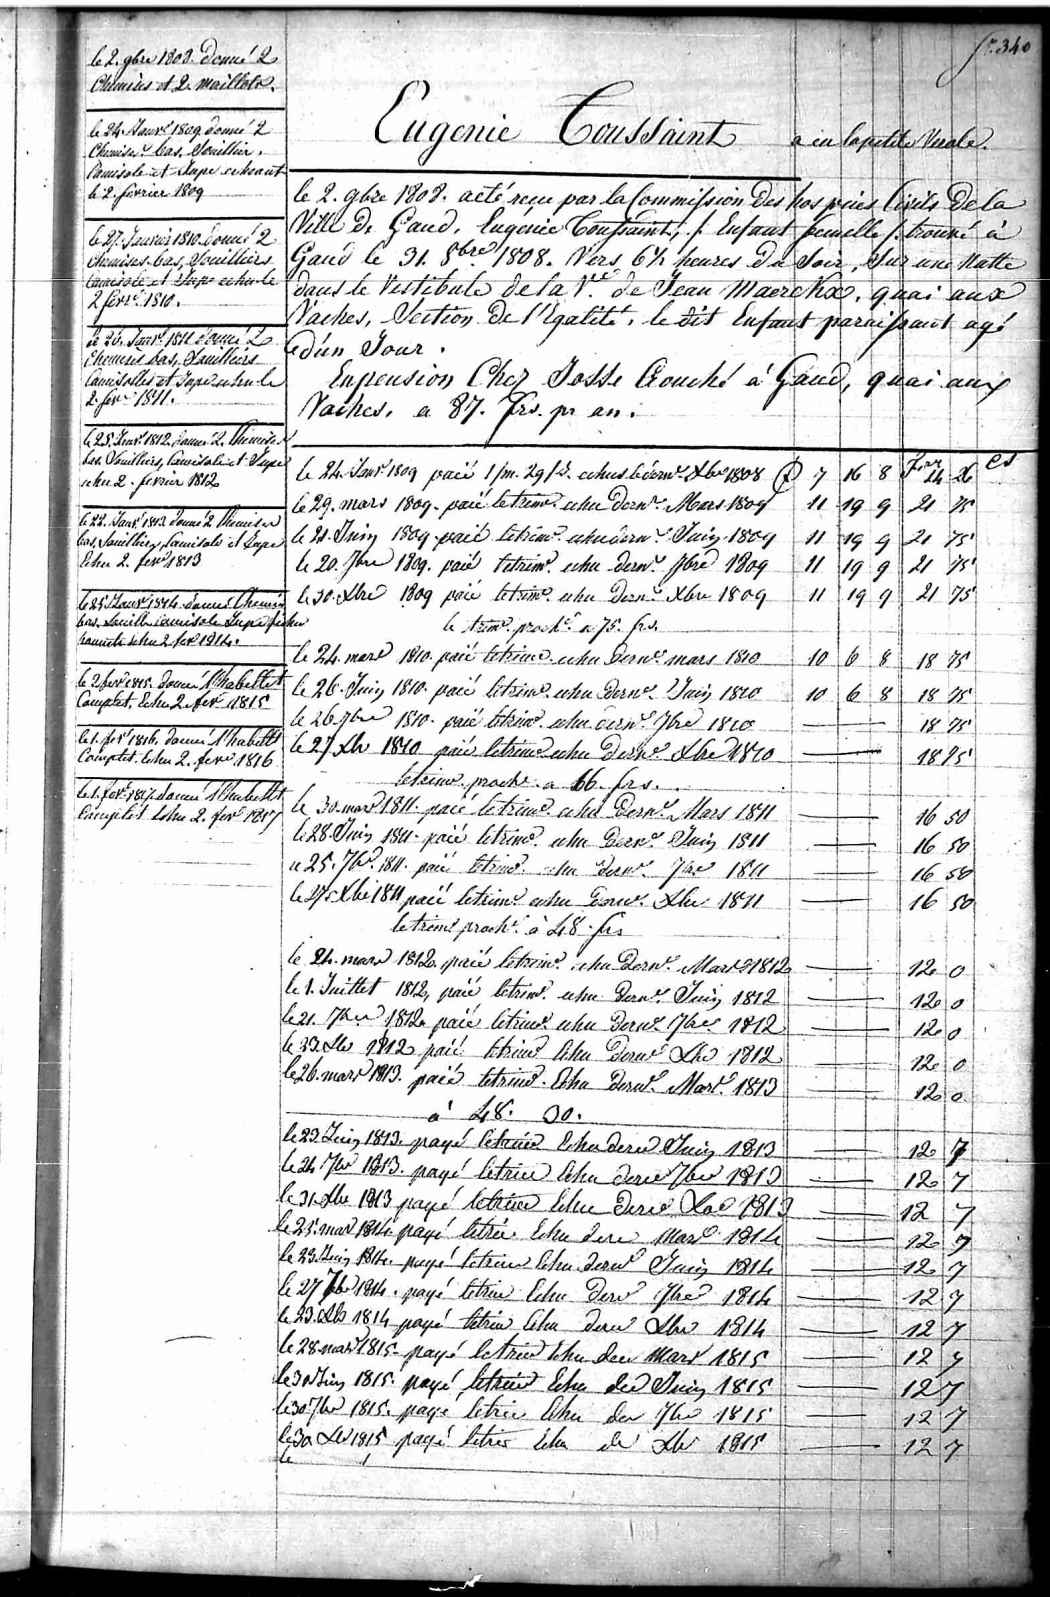 fo. 340
le 2. 9bre 1808. donné 2
Chemises et 2 maillots.
le 24. Janvr 1809 donné 2
Chemises bas, Souillier.
Camisole et Jupe echeant
le 2. février 1809
le 27. Janvier 1810. donné 2
Chemises bas, Souilliers
Camisole et Jupe echu le
2 fevr. 1810.
le 26. Janvr 1811 donné 2
Chemises bas, Souilliers
Camisolles et Jupe echu le
2. fevr 1811.
le 25. Janvr 1812. donné 2 Chemises
bas. Souilliers, Camisole et Jupe
echu 2. fevrier 1812
le 22. Janvr 1813 donné 2 Chemises
bas, Souilliers, Camisole et Jupe
Echu 2. fevr 1813
le 25. Janvr 1814. donné Chemise
bas. Souill. Camisole Jupe fichu
echu 2 fevr 1814.
le 2 fevr 1815. donné 1 habillet
Complet. Echu 2. fevr 1815
le 1. fevr 1816. donné 1 habillt
Complet. Echu 2. fevr 1816
le 1. fevr 1817. donné 1 habillt
Complet Echu 2. fevr 1817
Eugenie Toussaint a eu la petite Verole.
le 2. 9bre 1808. acté reçu par la Commission des hospices Civils de la
Ville de Gand, Eugénie Toussaint, /: Enfant femelle :/ trouvé à
Gand le 31. 8bre 1808. Vers 6½ heures du Soir, Sur une Natte
dans le Vestibule de la Ve. de Jean Maerckx, quai aux
Vaches, Section de l'Egalité, le dit Enfant paraissant agé
d'un Jour.
En pension Chez Josse Crouché á Gand, quai aux
Vaches, a 87. frs. pr an.
frs cs
le 24. Janvr 1809 paié 1 m. 29 js. echus le dernr. Xbre 1808 7 16 8 14 26
le 29. mars 1809. paié le trimr. echu dernr. Mars 1809 11 19 9 21 75
le 21 Juin 1809 paié le trimr. echu dernr. Juin 1809 11 19 9 21 75
le 20. 7bre 1809. paié le trimr. echu dernr. 7bre 1809 11 19 9 21 75
le 30. Xbre 1809 paié le trimr. echu dernr. Xbre 1809 11 19 9 21 75
le trimr. prochr. a 75. frs.
le 24. mars 1810. paié le trimr. echu dernr. mars 1810 10 6 8 18 75
le 26. Juin 1810. paié le trimr. echu dernr. Juin 1810 10 6 8 18 75
le 26 7bre 1810. paié le trimr. echu dernr. 7bre 1810 18 75
le 27 Xbr 1810 paié le trimr echu dernr. Xbre 1810 18 75
le trimr. prochr. a 66 frs.
le 30. mars 1811. paié le trimr. echu dernr. Mars 1811 16 50
le 28. Juin 1811. paié le trimr. echu dernr. Juin 1811 16 50
le 25. 7br. 1811. paié le trimr. echu dernr. 7bre 1811 16 50
le 27. Xbre 1811 paié le trimr. echu dernr. Xbre 1811 16 50
le trimr. prochr. à 48. frs
le 24. mars 1812. paié le trimr. echu dernr. Mars 1812 12 0
le 1. Juillet 1812, paié le trimr. echu dernr. Juin 1812 12 0
le 21. 7bre 1812. paié le trimr. echu dernr. 7bre 1812 12 0
le 23 Xbr 1812 paié le trimr Echu dernr Xbr 1812 12 0
le 26. mars 1813. paié le trimr. Echu dernr. Mars. 1813 12 0
à 48. 30.
le 23. Juin 1813. payé le trim Echu dern Juin 1813 12 7
le 24 7br 1813. payé le trim Echu dern 7br 1813 12 7
le 31. Xbr 1813 payé le trim Echu dern Xbr 1813 12 7
le 25. mars 1814 payé le trim Echu dern Mars 1814 12 7
le 23. Juin 1814. payé le trim Echu dern Juin 1814 12 7
le 27 7br 1814. payé le trim Echu dern 7br 1814 12 7
le 23. Xbr 1814 payé le trim Echu dern Xbr 1814 12 7
le 28. mars 1815. payé le trim Echu der Mars 1815 12 7
le 30 Juin 1815. payé le trim Echu der Juin 1815 12 7
le 30 7br 1815. payé le trim Echu der 7br 1815 12 7
le 30 Xbr 1815 payé le trim Echu der Xbr 1815 12 7
le